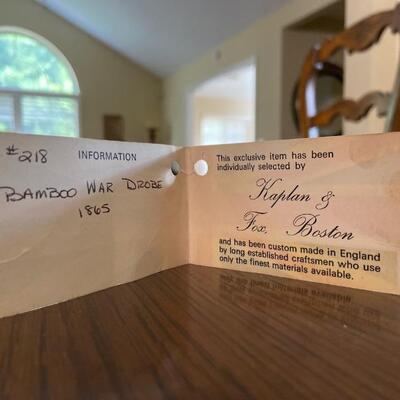 #218 INFORMATION
BAMBOO WAR DROBE
1865
This exclusive item has been
individually selected by
Kaplan &
Fox, Boston
and has been custom made in England
by long established craftsmen who use
only the finest materials available.